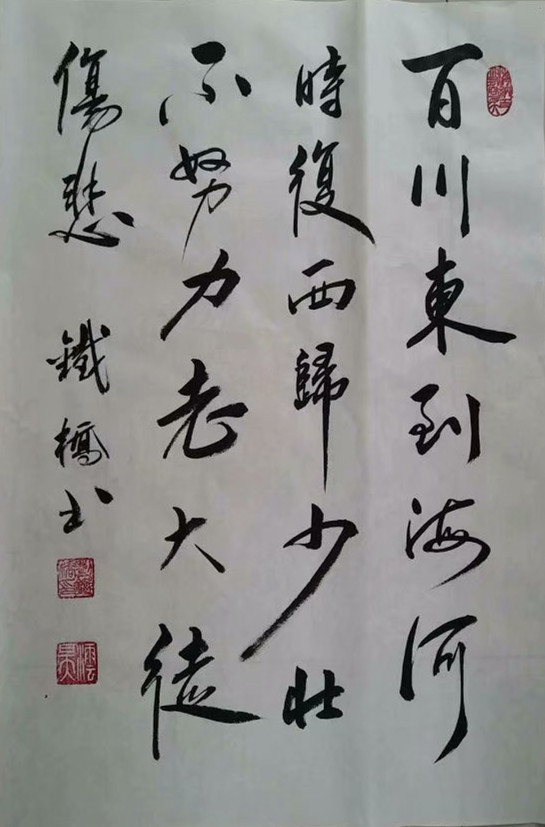 百川東到海河
時復西歸少壯
不努力老大徒
傷悲 鐵橋书